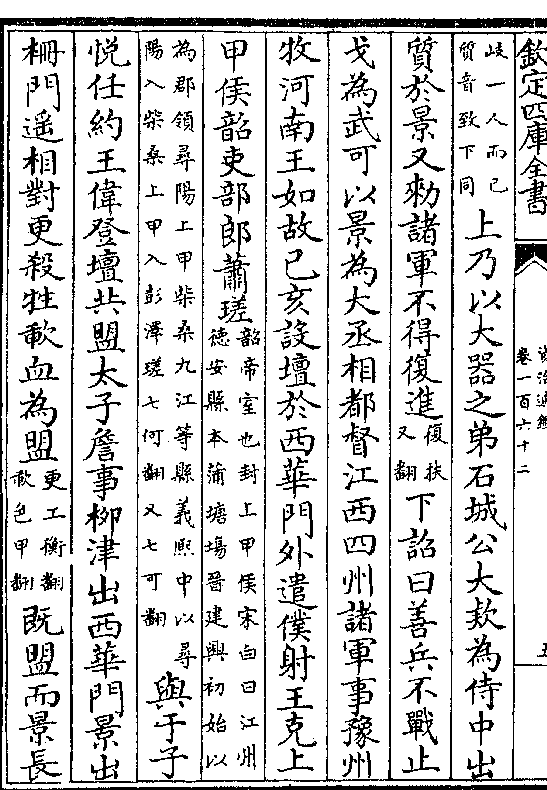 欽定四庫全書
資治通鑑
卷一百六十二
五
岐一人而已
質音致下同
上乃以大器之弟石城公大款為侍中出
質於景又勑諸軍不得復進
復扶
又翻
下詔曰善兵不戰止
戈為武可以景為大丞相都督江西四州諸軍事豫州
牧河南王如故己亥設壇於西華門外遣僕射王克上
甲侯韶吏部郎蕭瑳
韶帝室也封上甲侯宋白曰江州
德安縣本蒲塘塲晉建興初始以
為郡領尋陽上甲柴桑九江等縣義熙中以尋
陽入柴桑上甲入彭澤瑳七何翻又七可翻
與于子
悦任約王偉登壇共盟太子詹事柳津出西華門景出
柵門遥相對更殺牲歃血為盟
更工衡翻
歃色甲翻
既盟而景長